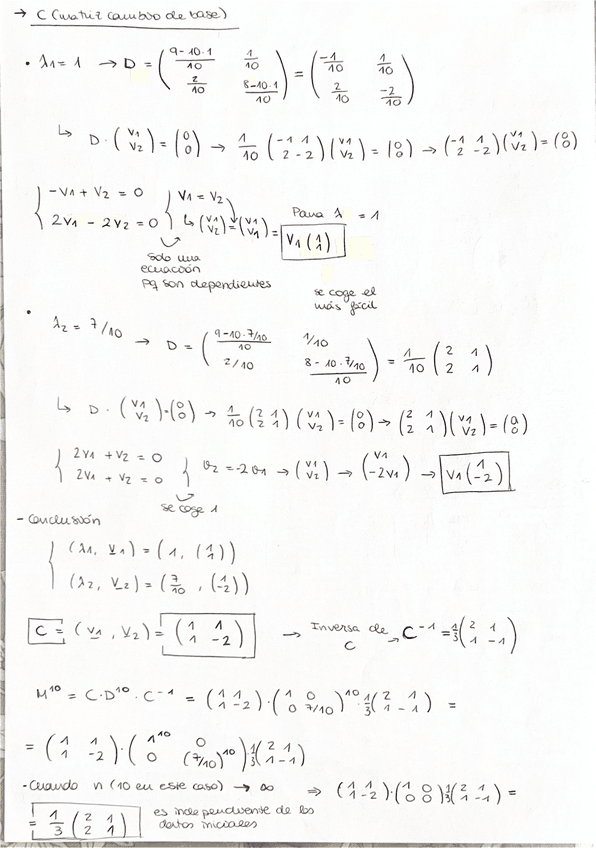 → C (matriz cambio de base)
• λ1 = 1 → D = ( (9-10·1)/10 1/10 ; 2/10 (8-10·1)/10 ) = ( -1/10 1/10 ; 2/10 -2/10 )
↳ D · ( v1 ; v2 ) = ( 0 ; 0 ) → 1/10 ( -1 1 ; 2 -2 ) ( v1 ; v2 ) = ( 0 ; 0 ) → ( -1 1 ; 2 -2 ) ( v1 ; v2 ) = ( 0 ; 0 )
{ -v1 + v2 = 0
2v1 - 2v2 = 0 } v1 = v2
↳ ( v1 ; v2 ) = ( v1 ; v1 ) = v1 ( 1 ; 1 )
Para λ = 1
solo una
ecuación
pq son dependientes
se coge el
más fácil
• λ2 = 7/10 → D = ( (9-10·7/10)/10 1/10 ; 2/10 (8-10·7/10)/10 ) = 1/10 ( 2 1 ; 2 1 )
↳ D · ( v1 ; v2 ) = ( 0 ; 0 ) → 1/10 ( 2 1 ; 2 1 ) ( v1 ; v2 ) = ( 0 ; 0 ) → ( 2 1 ; 2 1 ) ( v1 ; v2 ) = ( 0 ; 0 )
{ 2v1 + v2 = 0
2v1 + v2 = 0 } v2 = -2v1 → ( v1 ; v2 ) → ( v1 ; -2v1 ) → v1 ( 1 ; -2 )
se coge 1
- Conclusión
{ (λ1, v1) = (1, ( 1 ; 1 ))
(λ2, v2) = (7/10, ( 1 ; -2 ))
C = (v1, v2) = ( 1 1 ; 1 -2 ) → Inversa de C → C⁻¹ = 1/3 ( 2 1 ; 1 -1 )
M¹⁰ = C · D¹⁰ · C⁻¹ = ( 1 1 ; 1 -2 ) · ( 1 0 ; 0 7/10 )¹⁰ · 1/3 ( 2 1 ; 1 -1 ) =
= ( 1 1 ; 1 -2 ) · ( 1¹⁰ 0 ; 0 (7/10)¹⁰ ) · 1/3 ( 2 1 ; 1 -1 )
- Cuando n (10 en este caso) → ∞ ⇒ ( 1 1 ; 1 -2 ) · ( 1 0 ; 0 0 ) · 1/3 ( 2 1 ; 1 -1 ) =
= 1/3 ( 2 1 ; 2 1 )
es independiente de los
datos iniciales